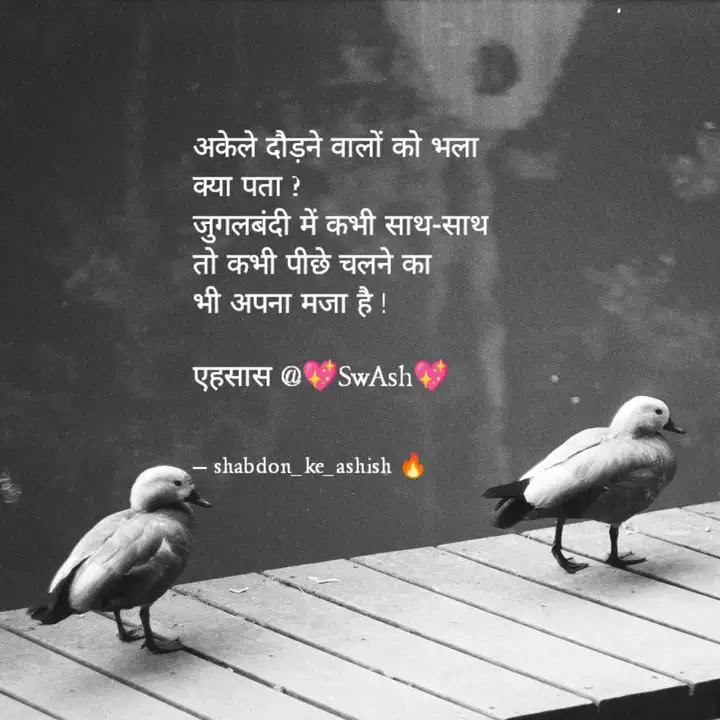 अकेले दौड़ने वालों को भला
क्या पता ?
जुगलबंदी में कभी साथ-साथ
तो कभी पीछे चलने का
भी अपना मजा है !
एहसास @💖SwAsh💖
– shabdon_ke_ashish 🔥